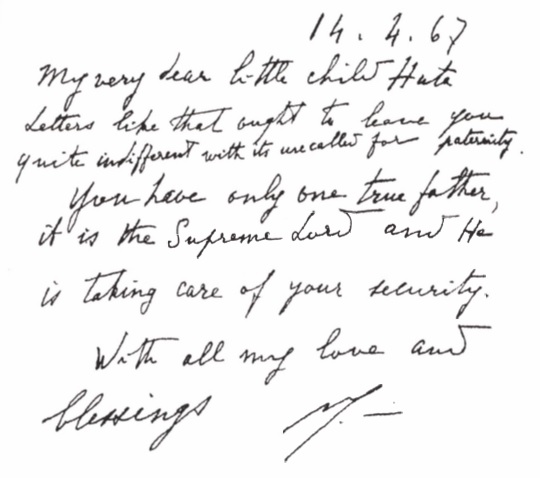 14.4.67
My very dear little child Huta
Letters like that ought to leave you
quite indifferent with its uncalled for paternity.
You have only one true father,
it is the Supreme Lord and He
is taking care of your security.
With all my love and
blessings